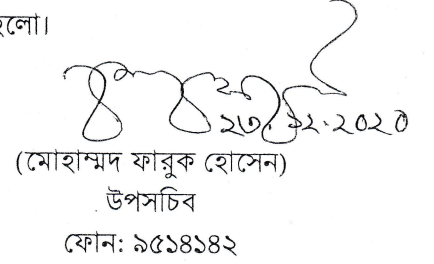 হলো।
২৩.১২.২০২০
(মোহাম্মদ ফারুক হোসেন)
উপসচিব
ফোন: ৯৫১৪১৪২